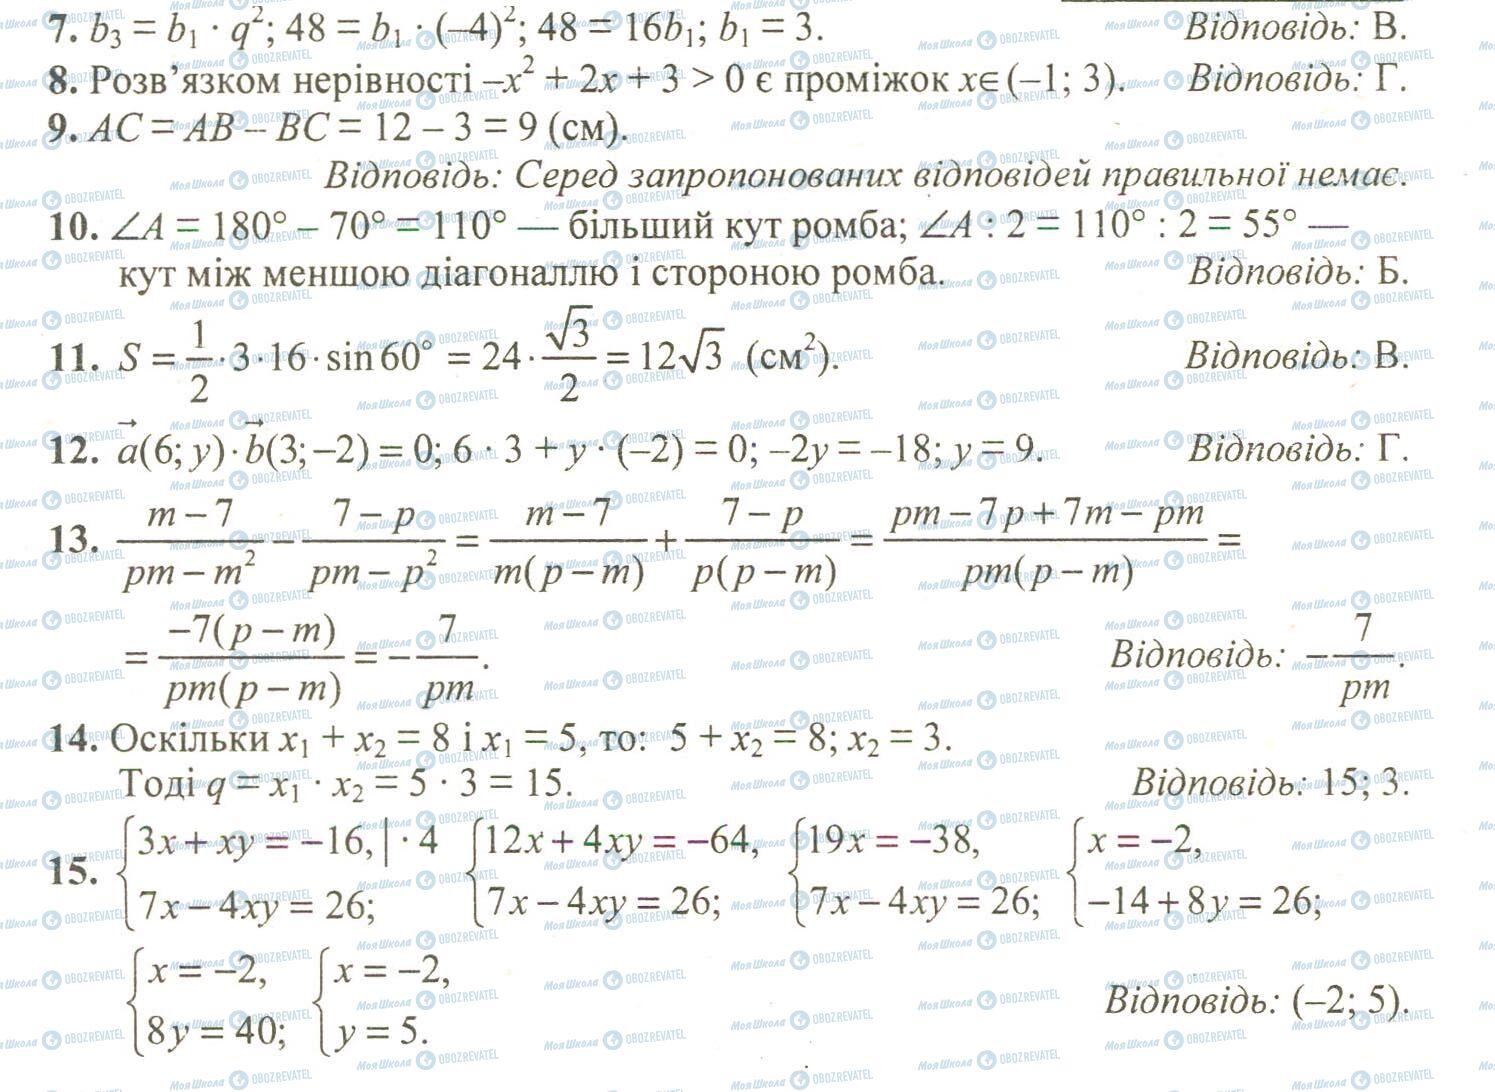 7. b₃ = b₁ · q²; 48 = b₁ · (–4)²; 48 = 16b₁; b₁ = 3. Відповідь: В.
8. Розв’язком нерівності –x² + 2x + 3 > 0 є проміжок x∈(–1; 3). Відповідь: Г.
9. AC = AB – BC = 12 – 3 = 9 (см).
Відповідь: Серед запропонованих відповідей правильної немає.
10. ∠A = 180° – 70° = 110° — більший кут ромба; ∠A : 2 = 110° : 2 = 55° —
кут між меншою діагоналлю і стороною ромба. Відповідь: Б.
11. S = 1/2 · 3 · 16 · sin 60° = 24 · √3/2 = 12√3 (см²). Відповідь: В.
12. a⃗(6; y) · b⃗(3; –2) = 0; 6 · 3 + y · (–2) = 0; –2y = –18; y = 9. Відповідь: Г.
13. (m – 7)/(pm – m²) – (7 – p)/(pm – p²) = (m – 7)/(m(p – m)) + (7 – p)/(p(p – m)) = (pm – 7p + 7m – pm)/(pm(p – m)) =
= (–7(p – m))/(pm(p – m)) = –7/(pm). Відповідь: –7/(pm).
14. Оскільки x₁ + x₂ = 8 і x₁ = 5, то: 5 + x₂ = 8; x₂ = 3.
Тоді q = x₁ · x₂ = 5 · 3 = 15. Відповідь: 15; 3.
15. {3x + xy = –16, | · 4 {12x + 4xy = –64, {19x = –38, {x = –2,
7x – 4xy = 26; 7x – 4xy = 26; 7x – 4xy = 26; –14 + 8y = 26;
{x = –2, {x = –2,
8y = 40; y = 5. Відповідь: (–2; 5).
МояШкола OBOZREVATEL